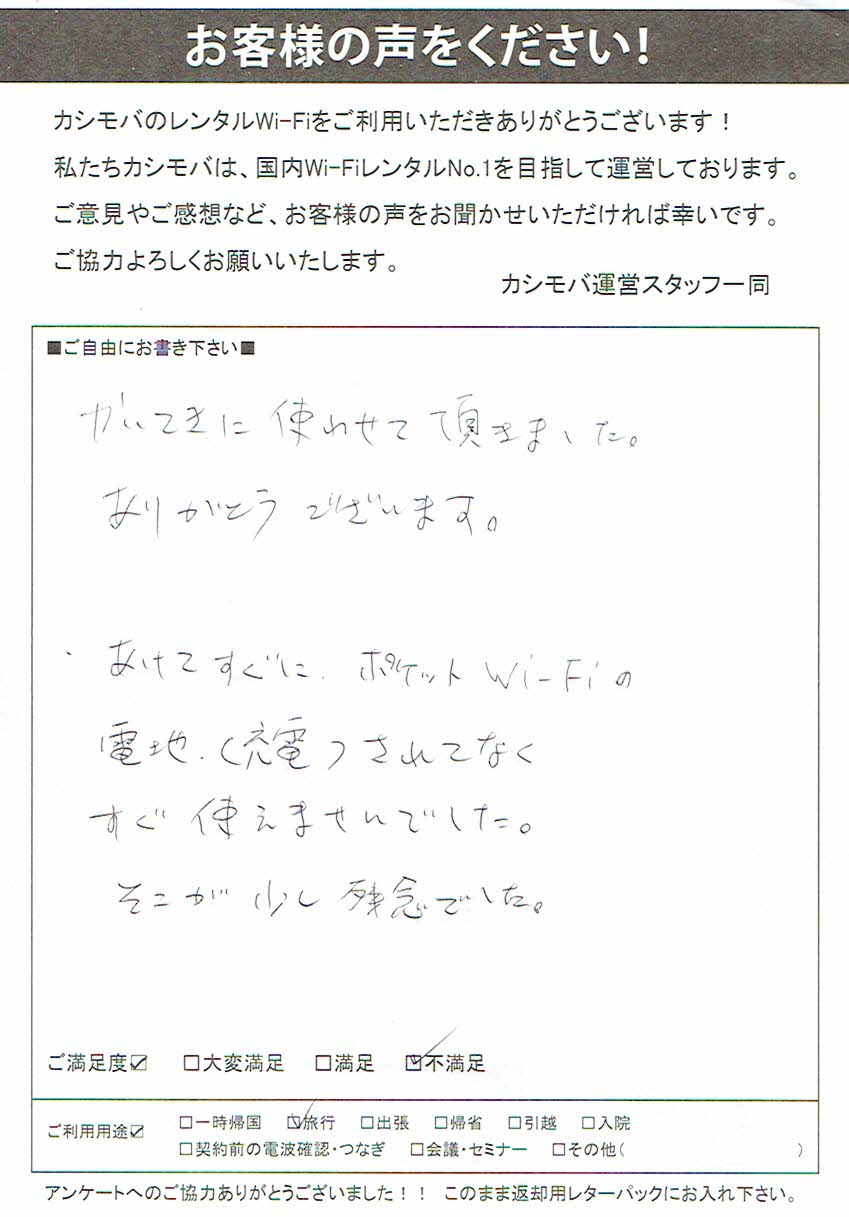 お客様の声をください!
カシモバのレンタルWi-Fiをご利用いただきありがとうございます！
私たちカシモバは、国内Wi-FiレンタルNo.1を目指して運営しております。
ご意見やご感想など、お客様の声をお聞かせいただければ幸いです。
ご協力よろしくお願いいたします。
カシモバ運営スタッフ一同
■ご自由にお書き下さい■
かいてきに使わせて頂きました。
ありがとうございます。
・あけてすぐに、ポケットWi-Fiの
電地、(充電)されてなく
すぐ使えませんでした。
そこが少し残念でした。
ご満足度☑ □大変満足 □満足 ☑不満足
ご利用用途☑ □一時帰国 ☑旅行 □出張 □帰省 □引越 □入院
□契約前の電波確認・つなぎ □会議・セミナー □その他( )
アンケートへのご協力ありがとうございました！！ このまま返却用レターパックにお入れ下さい。